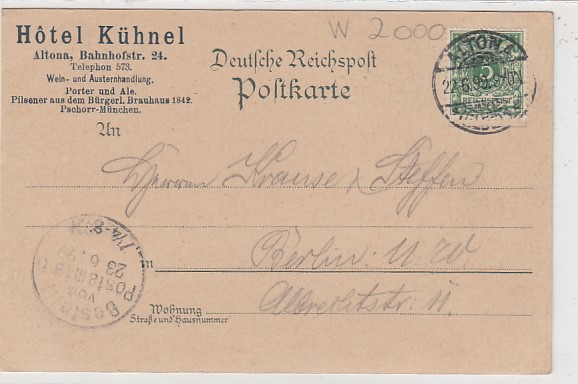 W 2000
Hôtel Kühnel
Altona, Bahnhofstr. 24.
Telephon 573.
Wein- und Austernhandlung.
Porter und Ale.
Pilsener aus dem Bürgerl. Brauhaus 1842.
Pschorr-München.
Deutsche Reichspost
Postkarte
ALTONA
22.6.
5
REICHSPOST
An
Herren Krause & Steffen
in Berlin N.W.
11
Wohnung
Straße und Hausnummer
Bestellt
vom
Postamte 6
23 6. 95
7¼-8½